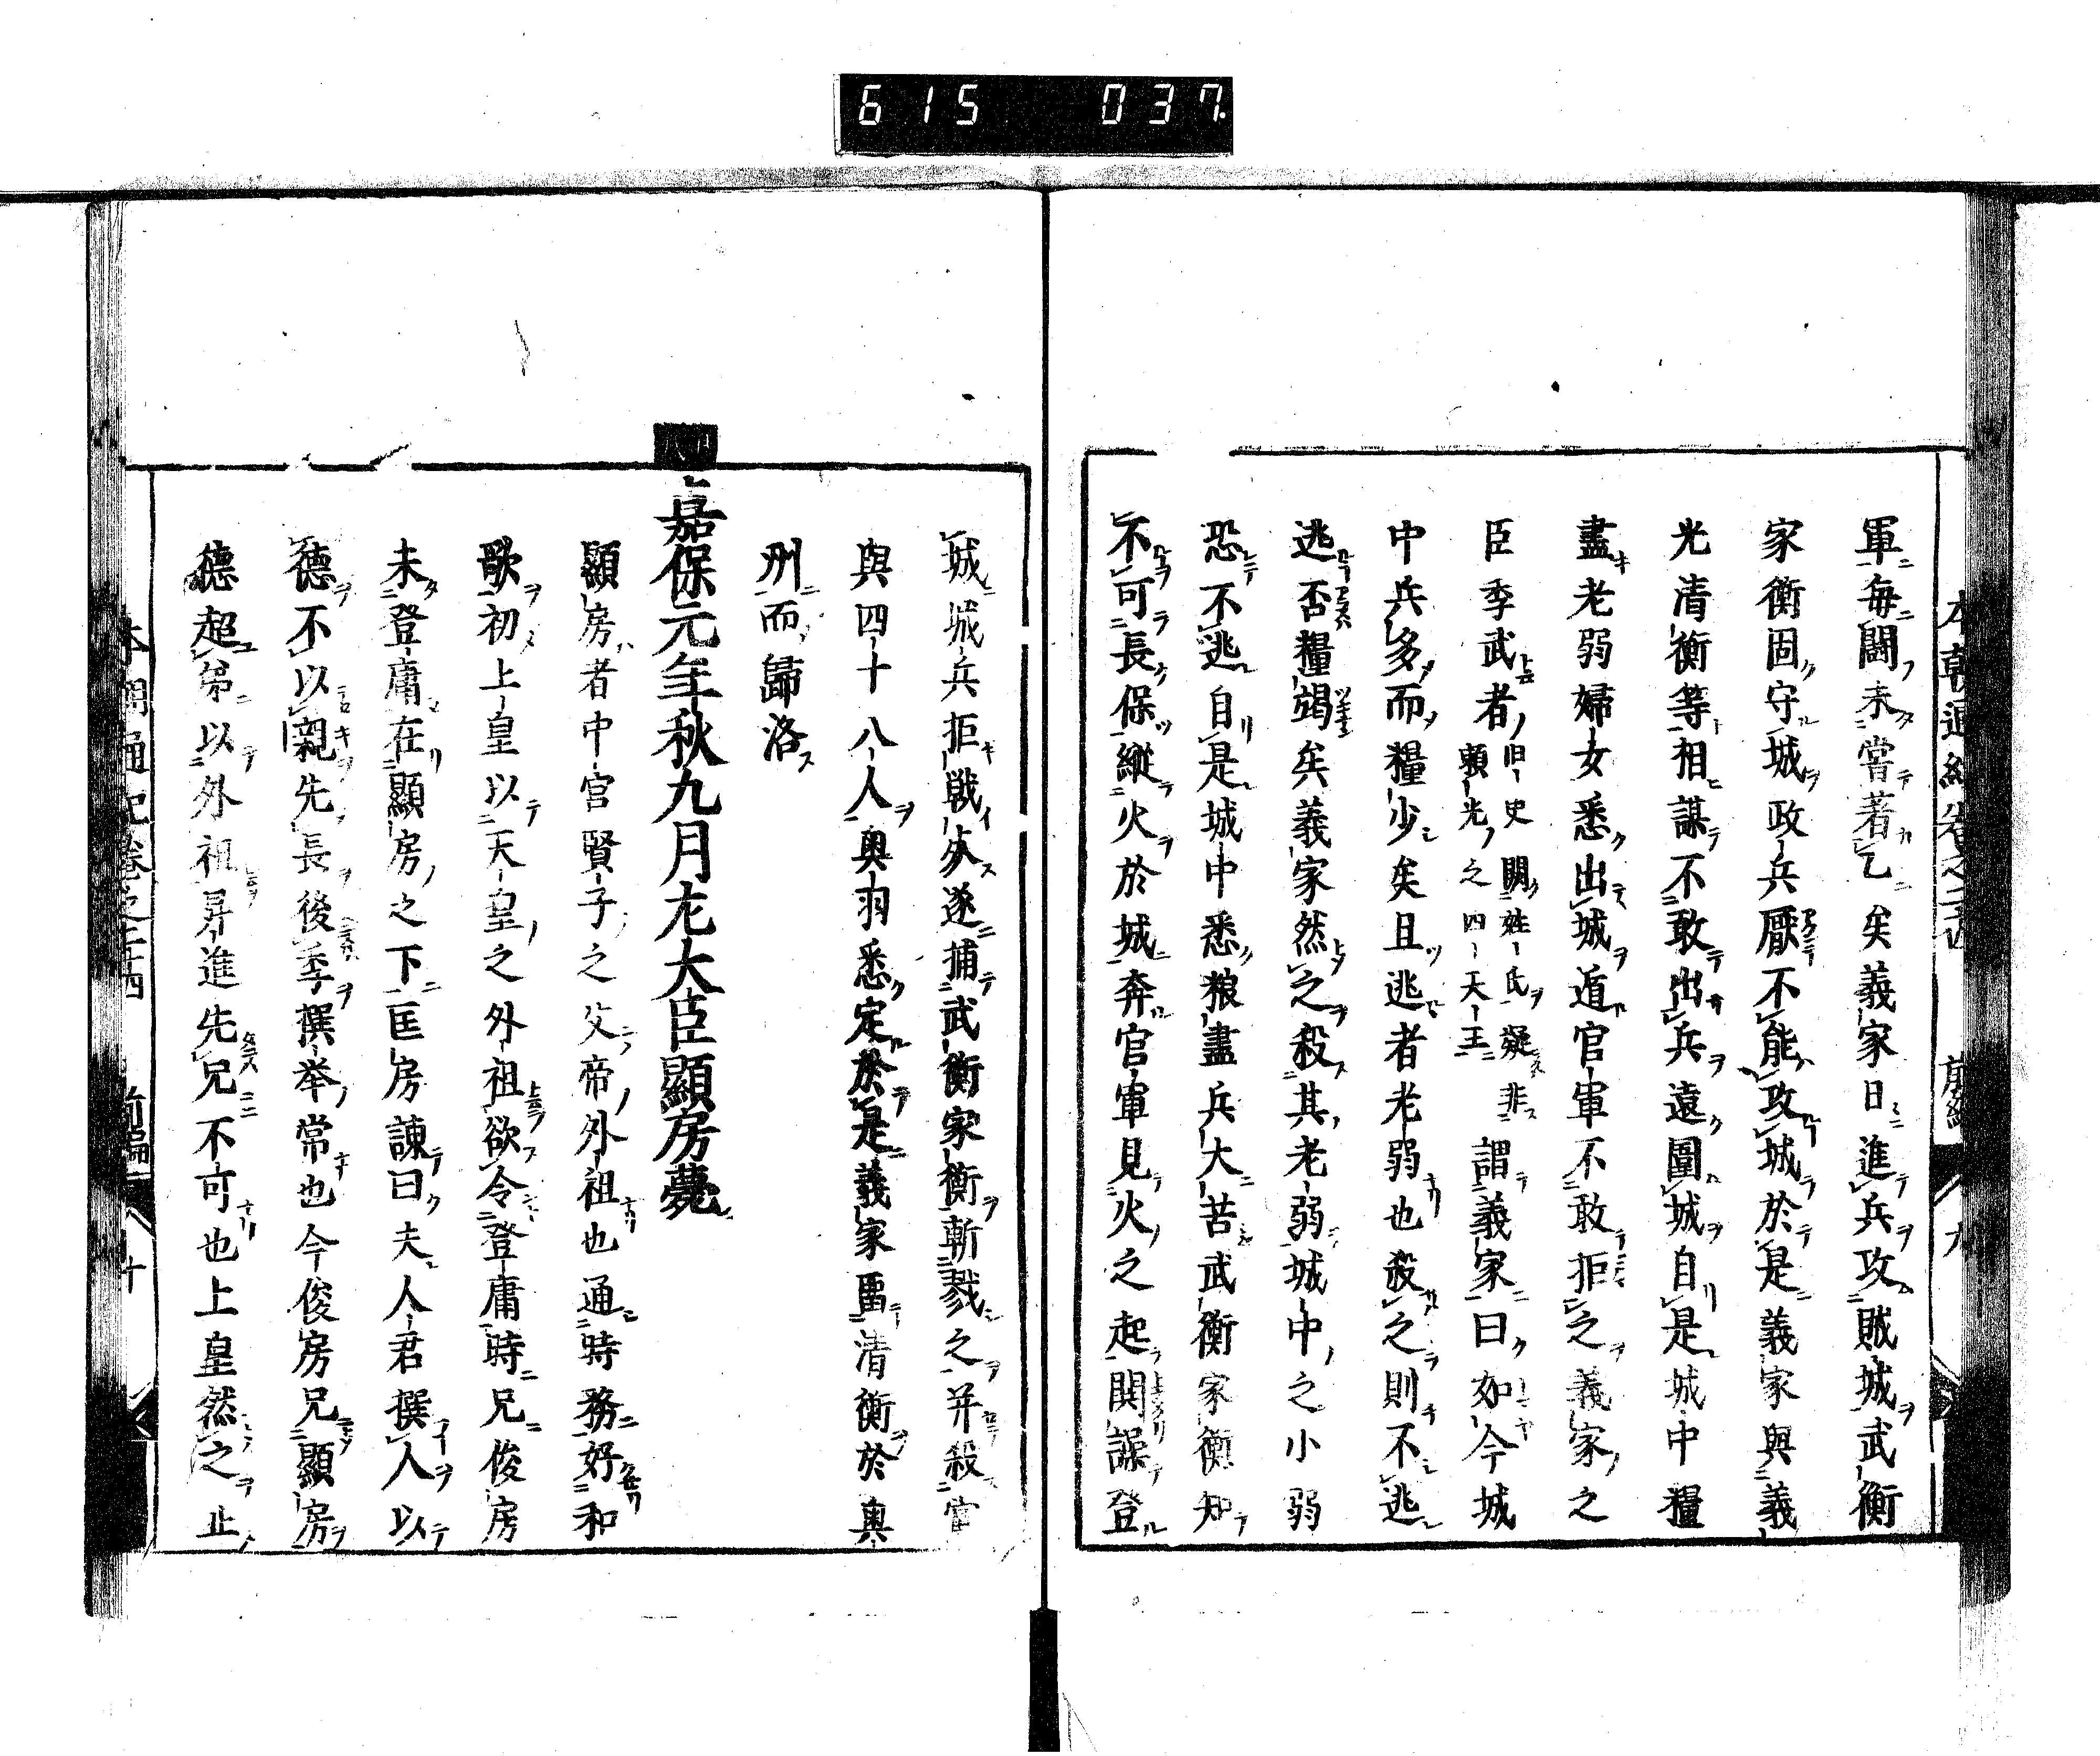 615 037
軍毎闘未嘗著乙矣義家日進兵攻賊城武衡
家衡固守城政兵厭不能攻城於是義家與義
光清衡等相謀不敢出兵遠圍城自是城中糧
盡老弱婦女悉出城遁官軍不敢拒之義家之
臣季武者
旧史闕姓氏疑非
頼光之四天王
謂義家曰如今城
中兵多而糧少矣且逃者老弱也殺之則不逃
逃否糧竭矣義家然之殺其老弱城中之小弱
恐不逃自是城中悉粮盡兵大苦武衡家衡知
不可長保縱火於城奔官軍見火之起関譟登
城城兵拒戦外遂捕武衡家衡斬戮之并殺當
與四十八人奥羽悉定於是義家畱清衡於奥
州而歸洛
嘉保元年秋九月左大臣顯房薨
顯房者中宮賢子之父帝外祖也通時務好和
歌初上皇以天皇之外祖欲令登庸時兄俊房
未登庸在顯房之下匡房諌曰夫人君撰人以
德不以親先長後季撰举常也今俊房兄顯房
德超弟以外祖昇進先兄不可也上皇然之止
本朝通紀卷之十四 前編 十